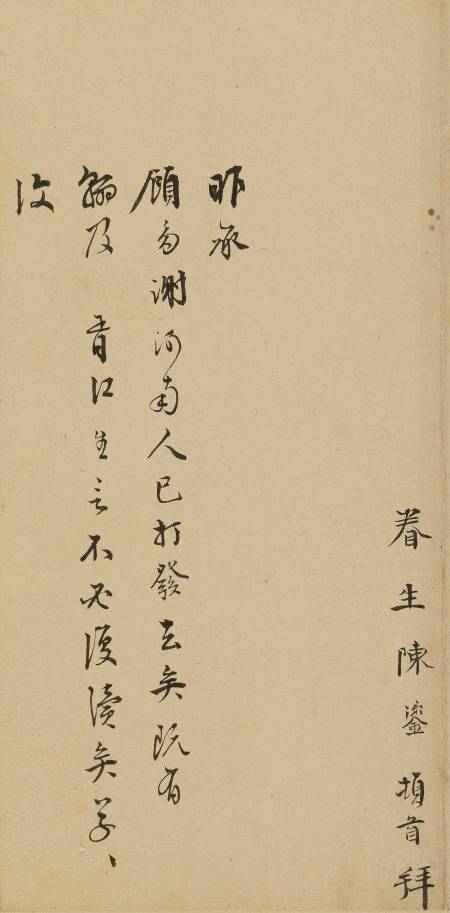 眷生陳鎏頓首拜
昨承
顧多謝河南人已打發去矣既有
翰及 青江生言不必復瀆矣草〻
後